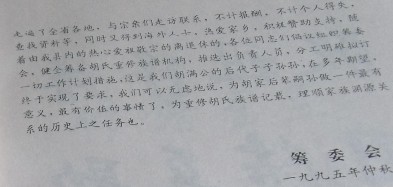 走遍了全省各地，与宗亲们走访联系，不计报酬，不计个人得失，
查找资料等，同时又得到海外人士，热爱家乡，积极赞助支持，随
着由我县内的热心爱祖敬宗的离退休的，各位同志们倡议组织筹委
会，健全筹备胡氏重修族谱机构，推选出负责人员，分工明确拟订
一切工作计划措施，这是我们胡满公的后代子子孙孙，在多年期望，
终于实现了要求，我们可以无虑地说，为胡家后裔嗣孙做一件最有
意义，最有价值的事情了，为重修胡氏族谱记载，理顺家族渊源关
系的历史上之任务也。
筹委会
一九九五年仲秋